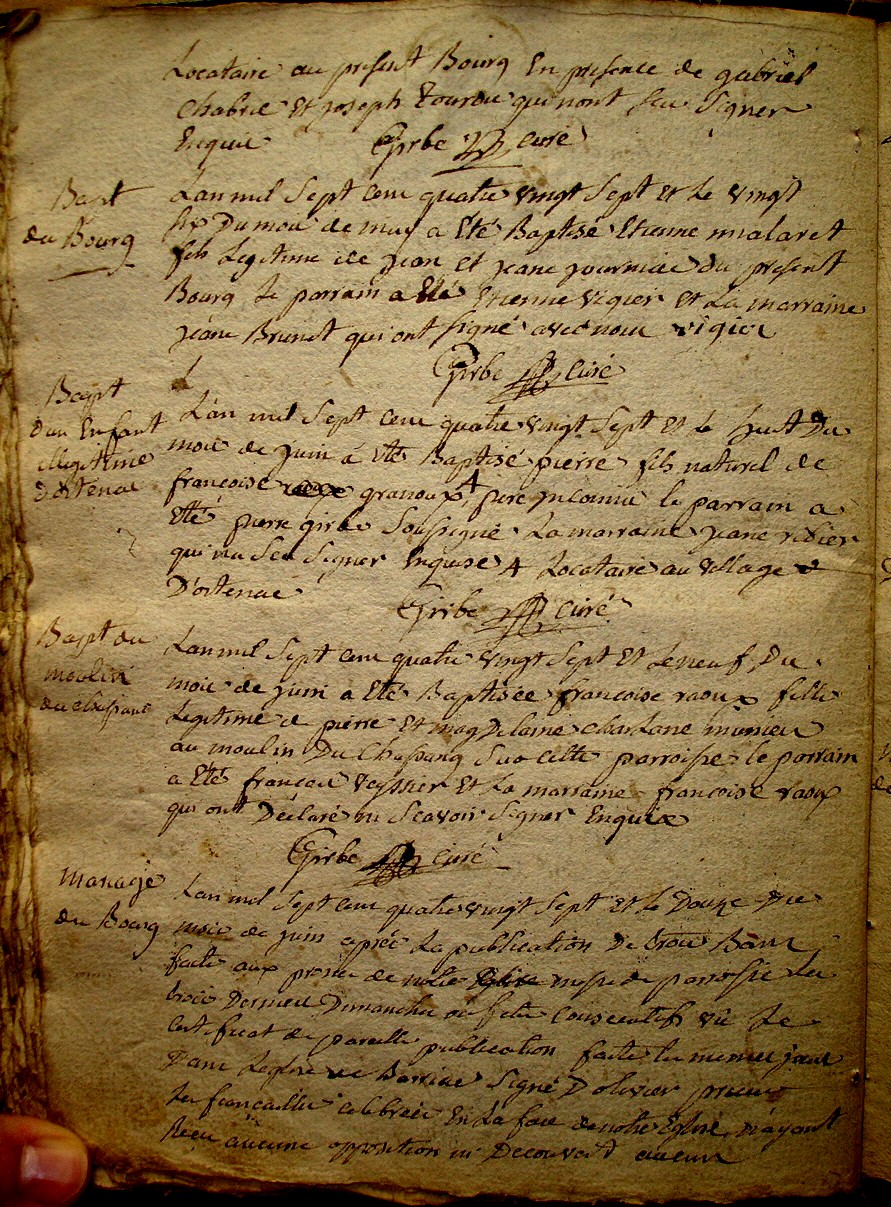 Locataire au present Bourg En presence de gabriel
Chabrie Et joseph Tourdu qui nont seu signer
Enquis Girbe curé
Bapt
du Bourg
Lan mil sept cent quatre vingt sept et Le vingt
six Du moi de may a Eté Baptisé Etienne mialaret
fils Legitime de jean et jeane journiac du present
Bourg Le parrain a Eté Etienne vigier et La marraine
jeane Brunet qui ont signé avec nous vigier
Girbe curé
Bapt
Dun Enfant
illegitime
D'ostenac
L'an mil sept cent quatre vingt sept et Le huit Du
mois de juin a eté Baptisé pierre fils naturel de
francoise granoux pere inconnu le parrain a
Eté pierre girbe soussigné La marraine jeane
qui na seu signer enquise Locataire au village
D'ostenac Girbe curé
Bapt du
moulin
du
Lan mil sept cent quatre vingt sept et Le neuf Du
mois de juin a Eté Baptisée francoise raoux fille
Legitime de pierre Et magdelaine munier
au moulin Du sus cette parroisse le parrain
a Eté francois veyssier et La marraine francoise raoux
qui ont Déclaré ni scavoir signer Enquis
Girbe curé
mariage
du Bourg
Lan mil sept cent quatre vingt sept et Le Douze Du
mois de juin après La publication De trois Bans
faite aux prones de notre messe de parroisse les
trois Derniers Dimanches ou fetes consecutifs vu Le
certificat de pareille publication faite les memes jours
Dans Leglise de Barriac signé Dolivier prieur
Les fiancailles celebrées En La face de notre Eglise, n'ayant
Recu aucune opposition ni Decouvert aucun